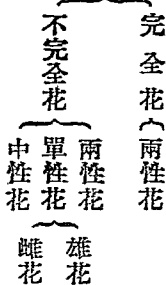 完全花
兩性花
不完全花
兩性花
單性花
中性花
雄花
雌花